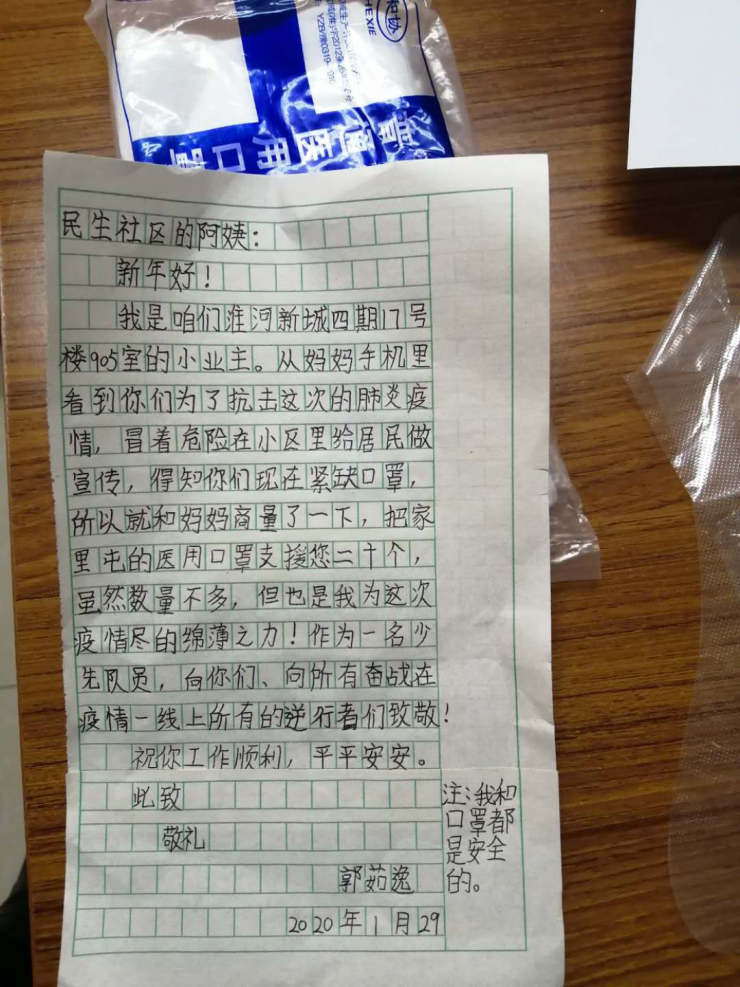 和协
HEXIE
普通医用口罩
民生社区的阿姨：
新年好！
我是咱们淮河新城四期17号
楼905室的小业主。从妈妈手机里
看到你们为了抗击这次的肺炎疫
情，冒着危险在小区里给居民做
宣传，得知你们现在紧缺口罩，
所以就和妈妈商量了一下，把家
里屯的医用口罩支援您二十个，
虽然数量不多，但也是我为这次
疫情尽的绵薄之力！作为一名少
先队员，向你们、向所有奋战在
疫情一线上所有的逆行者们致敬！
祝你工作顺利，平平安安。
此致
敬礼
郭茹逸
2020年1月29
注：我和
口罩都
是安全
的。